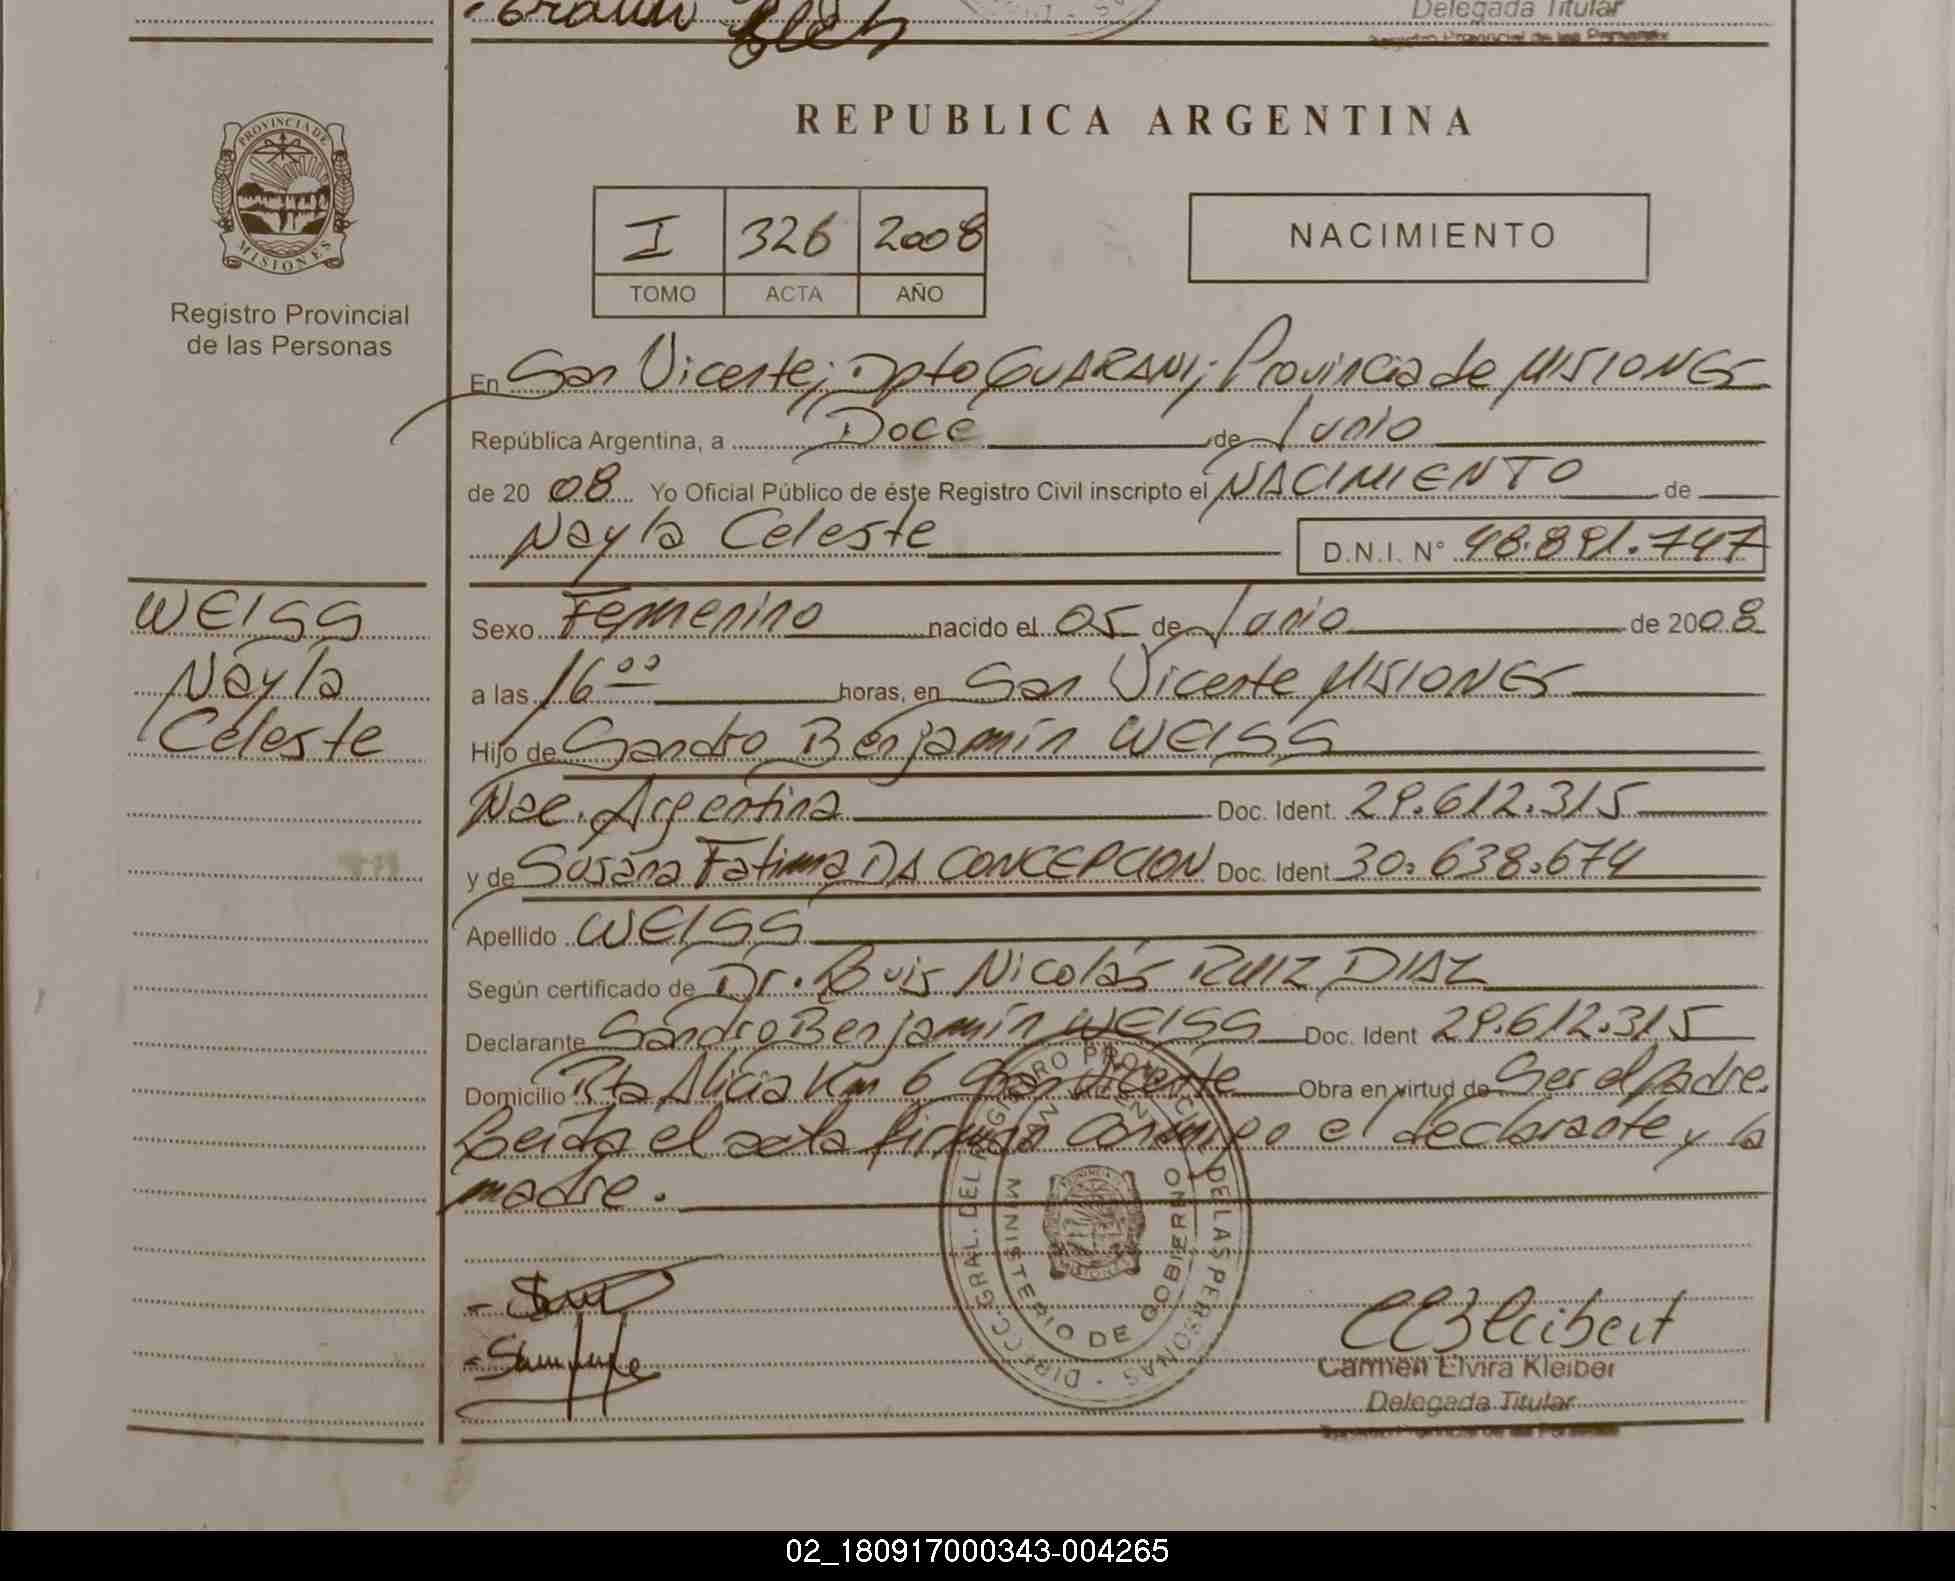 Delegada Titular
Registro Provincial de las Personas
PROVINCIA DE
MISIONES
Registro Provincial
de las Personas
REPUBLICA ARGENTINA
I 326 2008
TOMO ACTA AÑO
NACIMIENTO
En San Vicente; Dpto GUARANI; Provincia de MISIONES
República Argentina, a Doce de Junio
de 20 08 Yo Oficial Público de éste Registro Civil inscripto el NACIMIENTO de
Nayla Celeste D.N.I. N° 48.891.747
WEISS
Nayla
Celeste
Sexo Femenino nacido el 05 de Junio de 2008
a las 16 00 horas, en San Vicente MISIONES
Hijo de Sandro Benjamín WEISS
Nac. Argentina Doc. Ident. 29.612.315
y de Susana Fatima DA CONCEPCION Doc. Ident 30.638.674
Apellido WEISS
Según certificado de Dr. Luis Nicolás RUIZ DIAZ
Declarante Sandro Benjamín WEISS Doc. Ident 29.612.315
Domicilio Rta Alicia Km 6 San Vicente Obra en virtud de Ser el padre.
Leida el acta firman conmigo el declarante y la
madre.
DIRECC. GRAL. DEL REGISTRO PROVINCIAL DE LAS PERSONAS
MINISTERIO DE GOBIERNO
SAN VICENTE
MISIONES
Carmen Elvira Kleiber
Delegada Titular
Registro Provincial de las Personas
02_180917000343-004265